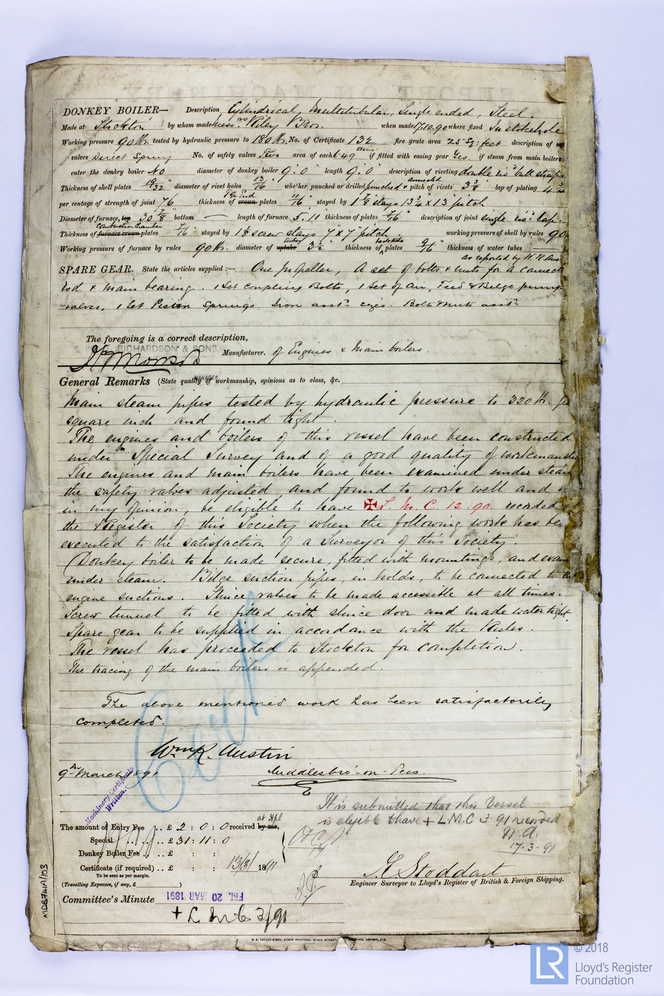 DONKEY BOILER— Description Cylindrical, Multitubular, Single ended, Steel.
Made at Stockton by whom made Riley Bros. when made where fixed In stokehole
Working pressure 90 lb. tested by hydraulic pressure to 180 lb. No. of Certificate fire grate area description of
valves Direct Spring No. of safety valves Two area of each if fitted with easing gear Yes if steam from main boilers
enter the donkey boiler No diameter of donkey boiler 9.0 length 9.0 description of riveting double riv. butt straps
Thickness of shell plates diameter of rivet holes whether punched or drilled pitch of rivets lap of plating
per centage of strength of joint 76 thickness of plates stayed by stays pitch
Diameter of furnace, bottom length of furnace 5.11 thickness of plates description of joint single riv. lap
Thickness of plates stayed by screw stays 7 x 7 pitch working pressure of shell by rules 90
Working pressure of furnace by rules 90 lb. diameter of thickness of plates thickness of water tubes
SPARE GEAR. State the articles supplied:— One propeller, A set of bolts & nuts for a connect
rod & main bearing. 1 Set coupling Bolts, 1 Set of Air, Feed & Bilge pump
valves, 1 Set Piston Springs Iron asst. sizes. Bolts & Nuts asst.
The foregoing is a correct description,
RICHARDSON & SONS
Manufacturer. of Engines & Main boilers
General Remarks (State quality of workmanship, opinions as to class, &c.
Main steam pipes tested by hydraulic pressure to 320 lb. p
square inch and found tight
The engines and boilers of this vessel have been constructed
under Special Survey and of a good quality of workmansh
The engines and main boilers have been examined under steam
the safety valves adjusted, and found to work well and
in my opinion, be eligible to have ✠ L.M.C. 12.90. recorded
the Register of this Society when the following work has be
executed to the satisfaction of a Surveyor of this Society.
(Donkey boiler to be made secure, fitted with mountings, and exam
under steam. Bilge suction pipes, in holds, to be connected to
engine suctions. Sluice valves to be made accessible at all times.
Screw tunnel to be fitted with sluice door and made water tight.
Spare gear to be supplied in accordance with the Rules.
The vessel has proceeded to Stockton for completion.
The tracing of the main boilers is appended.
The above mentioned work has been satisfactorily
completed.
Wm. R. Austin
9th March 1891 Middlesbro-on-Tees
Machinery Certificate
Written.
It is submitted that this Vessel
is eligible to have + L.M.C 3 91 record
17.3.91
The amount of Entry Fee .. £ 2 : 0 : 0 received by me,
Special .. £ 31 : 11 : 0
Donkey Boiler Fee .. £ : :
Certificate (if required) .. £ : : 13/3/1891
To be sent as per margin.
(Travelling Expenses, if any, £ )
J. E. Stoddart
Engineer Surveyor to Lloyd's Register of British & Foreign Shipping.
Committee's Minute
FRI. 20 MAR 1891
+ L M C 3/91
© 2018
LR
Lloyd's Register
Foundation